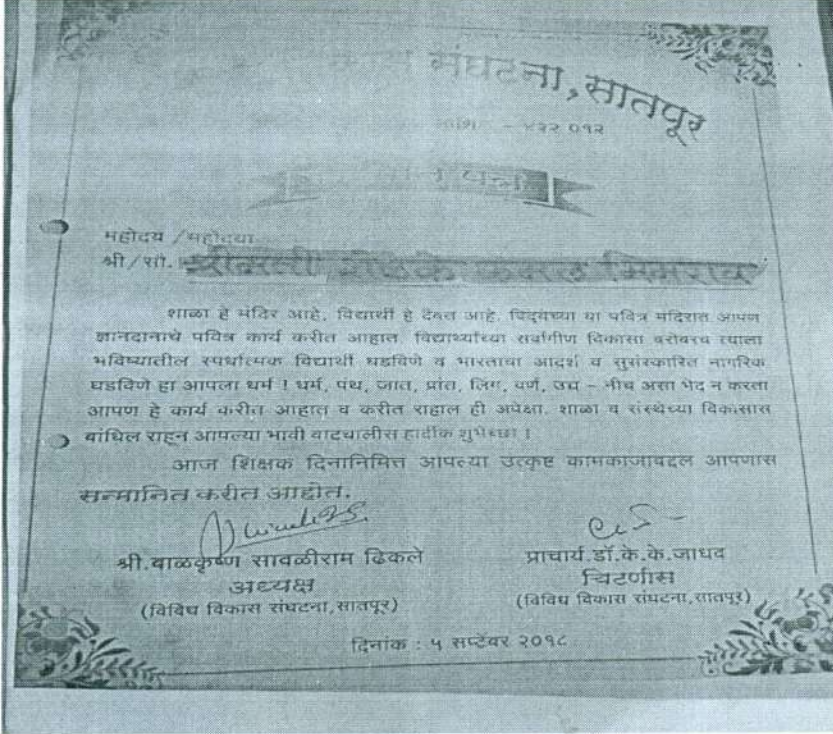 संघटना, सातपूर
- ४२२ ०१२
महोदय / महोदया
श्री/सौ. श्रीमती शेळके कमल भिमराव
शाळा हे मंदिर आहे, विद्यार्थी हे दैवत आहे. विद्येच्या या पवित्र मंदिरात आपण
ज्ञानदानाचे पवित्र कार्य करीत आहात. विद्यार्थ्यांच्या सर्वांगीण विकासा बरोबरच त्याला
भविष्यातील स्पर्धात्मक विद्यार्थी घडविणे व भारताचा आदर्श व सुसंस्कारित नागरिक
घडविणे हा आपला धर्म ! धर्म, पंथ, जात, प्रांत, लिंग, वर्ण, उच्च - नीच असा भेद न करता
आपण हे कार्य करीत आहात व करीत राहाल ही अपेक्षा. शाळा व संस्थेच्या विकासास
बांधिल राहून आपल्या भावी वाटचालीस हार्दीक शुभेच्छा !
आज शिक्षक दिनानिमित्त आपल्या उत्कृष्ट कामकाजाबद्दल आपणास
सन्मानित करीत आहोत.
श्री.बाळकृष्ण सावळीराम ढिकले
अध्यक्ष
(विविध विकास संघटना,सातपूर)
प्राचार्य डॉ.के.के.जाधव
चिटणीस
(विविध विकास संघटना,सातपूर)
दिनांक : ५ सप्टेंबर २०१८